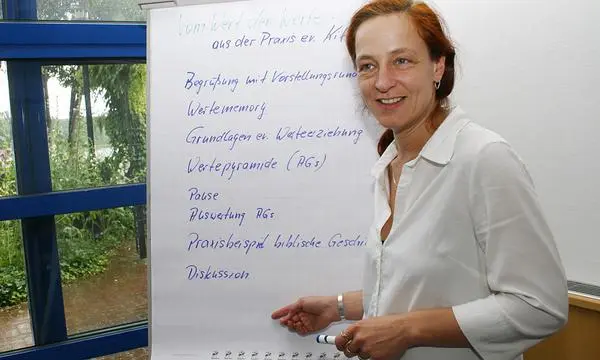 Vom Wert der Werte
aus der Praxis ev. Kit
Begrüßung mit Vorstellungsrund
Wertememory
Grundlagen ev. Werteerziehung
Wertepyramide (AGs)
Pause
Auswertung AGs
Praxisbeispiel biblische Geschi
Diskussion